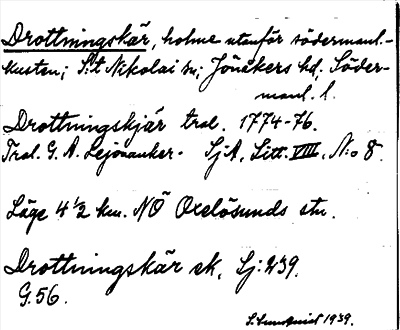 Drottningskär, holme utanför södermanl.-
kusten; S:t Nikolai sn; Jönåkers hd; Söder-
manl. l.
Drottningskjär tral. 1774-76.
Tral. G. A. Lejonanker. SjA, Litt. VIII, N:o 8.
Läge 4 ½ km. NÖ Oxelösunds stn.
Drottningskär ek. Sj: 239.
G. 56.
S. 1939.